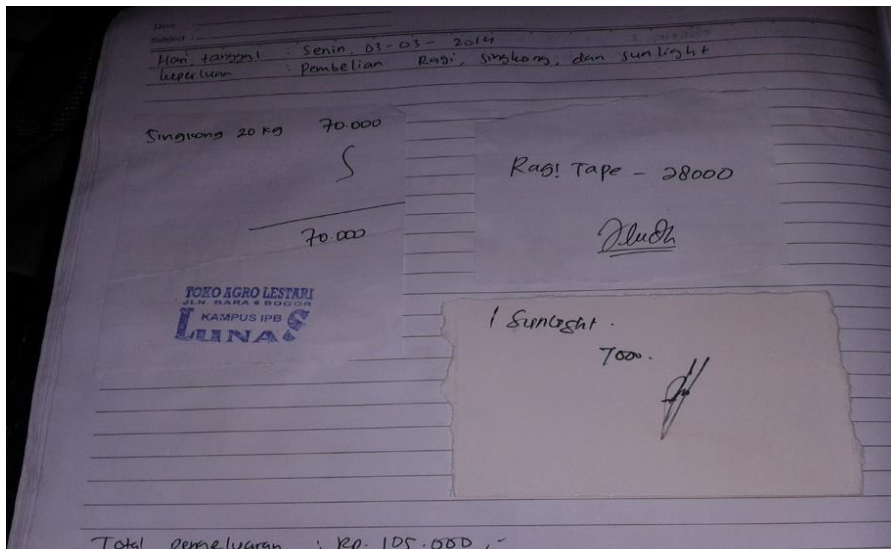 Date :
Subject :
Hari, tanggal : Senin, 03-03-2014
keperluan : Pembelian Ragi, singkong, dan sunlight
Singkong 20 kg 70.000
70.000
TOKO AGRO LESTARI
JLN. BARA 6 BOGOR
KAMPUS IPB
LUNAS
Ragi Tape - 28000
1 Sunlight.
7000.
Total pengeluaran : Rp. 105.000,-